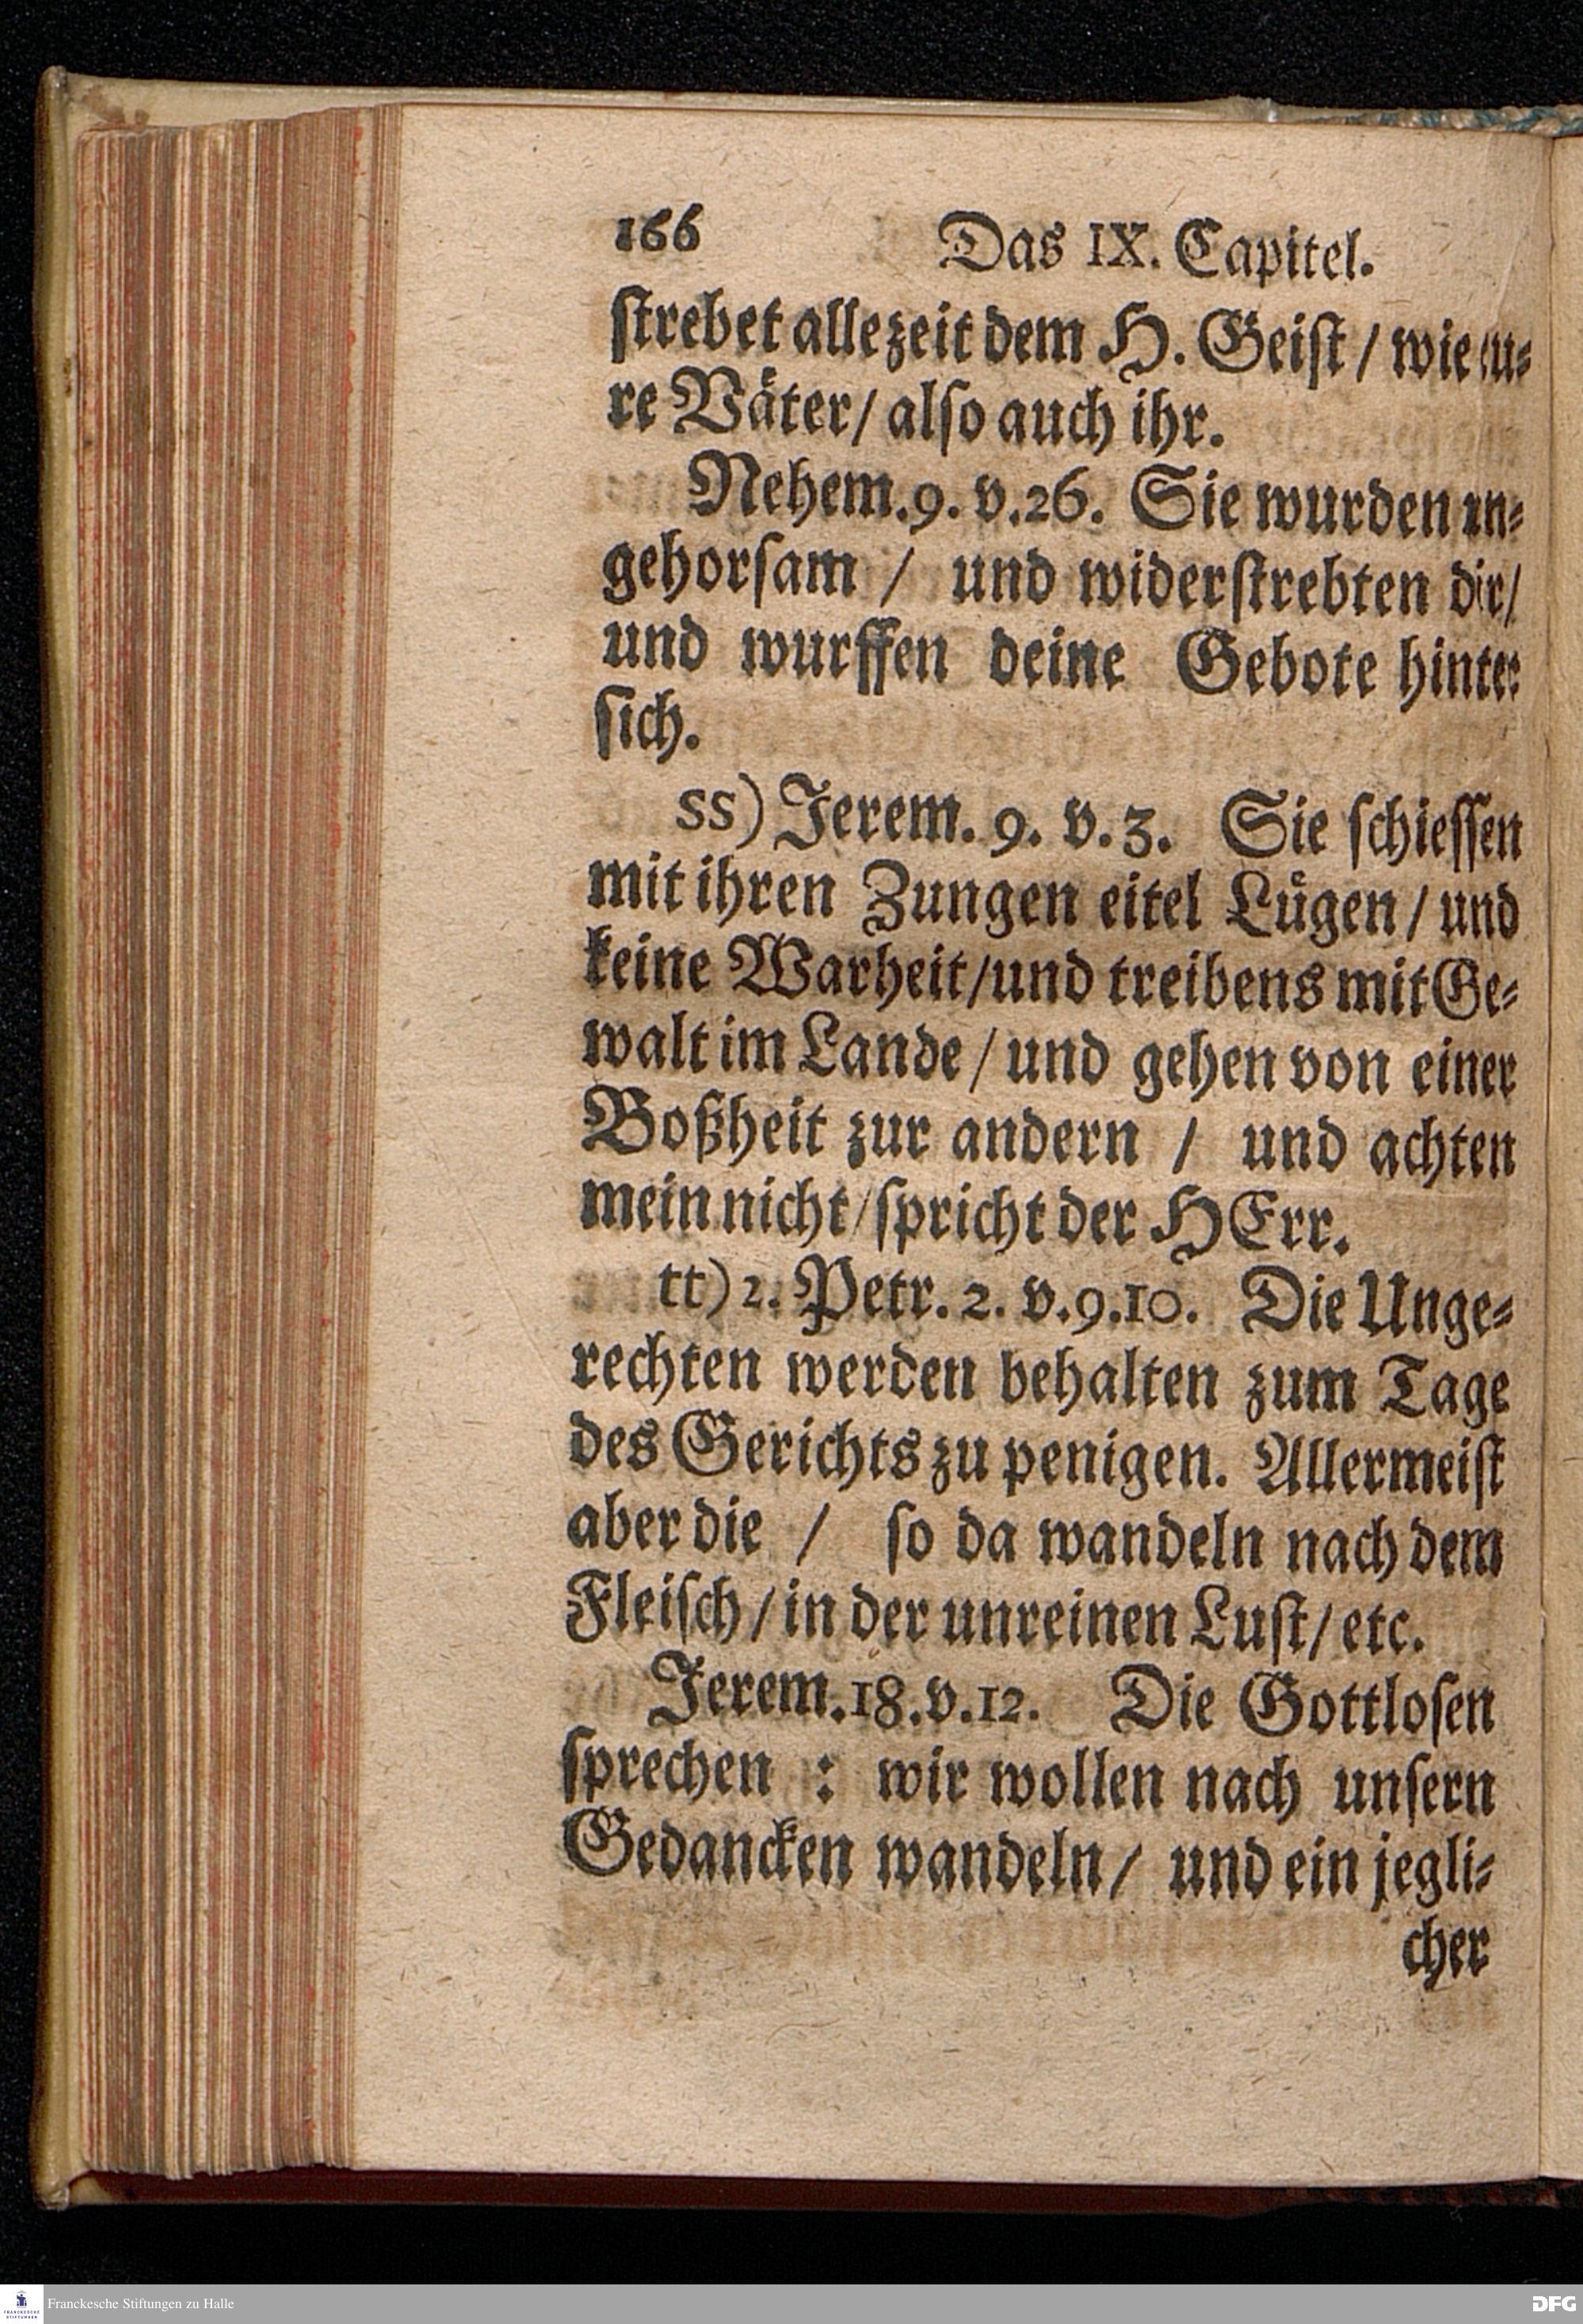 166 Das IX. Capitel.
ſtrebet allezeit dem H. Geiſt / wie eu⸗
re Vaͤter / alſo auch ihr.
Nehem. 9. v. 26. Sie wurden un⸗
gehorſam / und widerſtrebten dir /
und wurffen deine Gebote hinter
ſich.
ss) Jerem. 9. v. 3. Sie ſchieſſen
mit ihren Zungen eitel Luͤgen / und
keine Warheit / und treibens mit Ge⸗
walt im Lande / und gehen von einer
Boßheit zur andern / und achten
mein nicht / ſpricht der HErr.
tt) 2. Petr. 2. v. 9. 10. Die Unge⸗
rechten werden behalten zum Tage
des Gerichts zu penigen. Allermeiſt
aber die / ſo da wandeln nach dem
Fleiſch / in der unreinen Luſt / etc.
Jerem. 18. v. 12. Die Gottloſen
ſprechen : wir wollen nach unſern
Gedancken wandeln / und ein jegli⸗
cher
FRANCKESCHE
STIFTUNGEN
Franckesche Stiftungen zu Halle
DFG